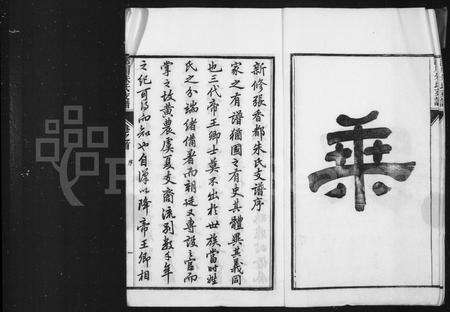 乘
新修張香都朱氏支譜序
家之有譜猶國之有史其體異其義同
也三代帝王卿士莫不出於世族當時姓
氏之分端緒備著而朝廷又專設之官而
掌之故黃農虞夏支裔流別數千年
之紀可得而知也自漢以降帝王卿相